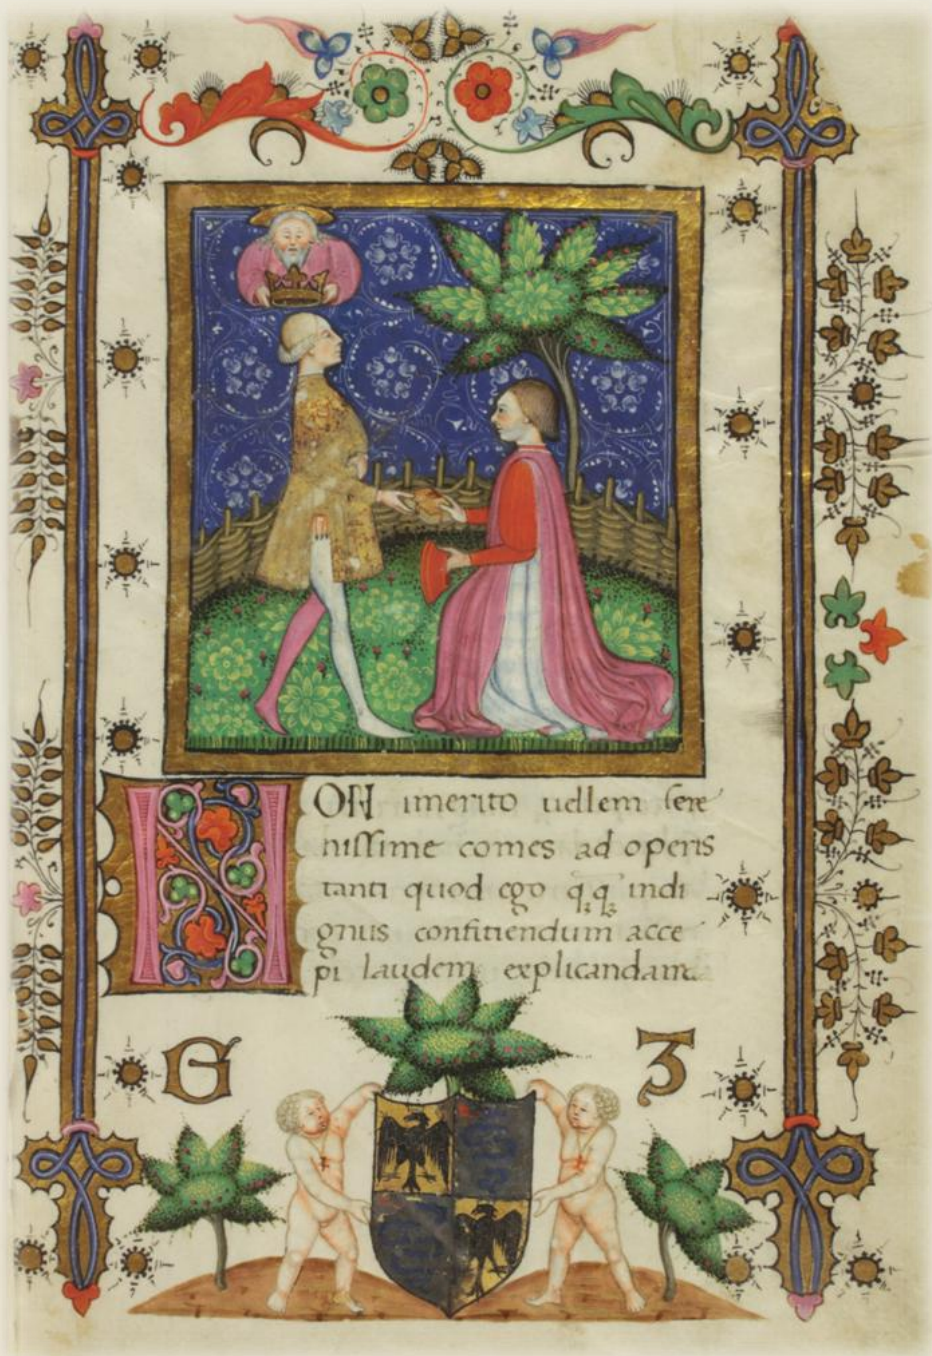 NON imerito uellem sere
nissime comes ad operis
tanti quod ego qͣqͣ indi
gnus confitiendum acce
pi laudem explicandam
G 3